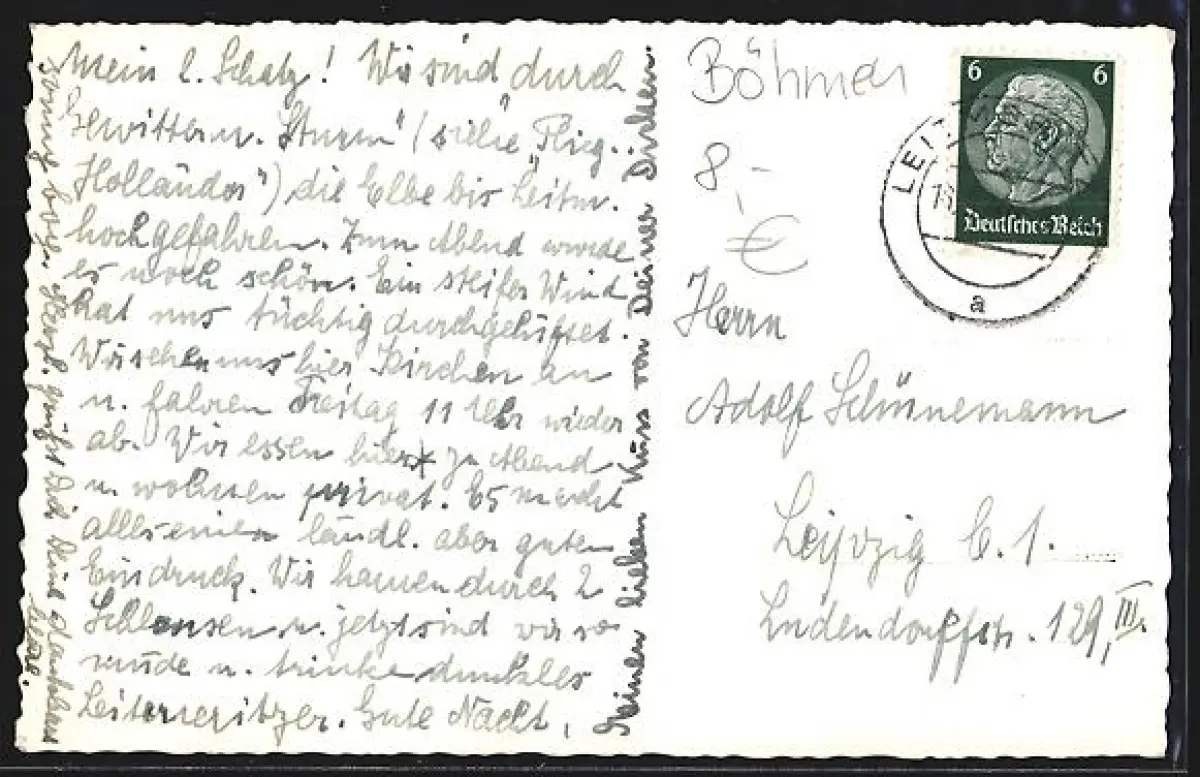 Mein l. Schatz! Wir sind durch
"Gewitter u. Sturm" (siehe "Flieg.
Holländer") die Elbe bis Leitm.
hochgefahren. Zum Abend wurde
es noch schön. Ein steifer Wind
hat uns tüchtig durchgelüftet.
Wir sehen uns hier Kirchen an
u. fahren Freitag 11 Uhr wieder
ab. Wir essen hier zu Abend
u. wohnen privat. Es macht
alles einen ländl. aber guten
Eindruck. Wir kamen durch 2
Schleusen u. jetzt sind wir so
müde u. trinke dunkles
Leitmeritzer. Gute Nacht,
Meinen lieben Kuss von Deiner
grüsst Dich Deine
Böhmen
8,-
€
Herrn
Adolf Schünemann
Leipzig C. 1.
Ludendorffstr. 129, III.
6 6
Deutsches Reich
LEIT
a